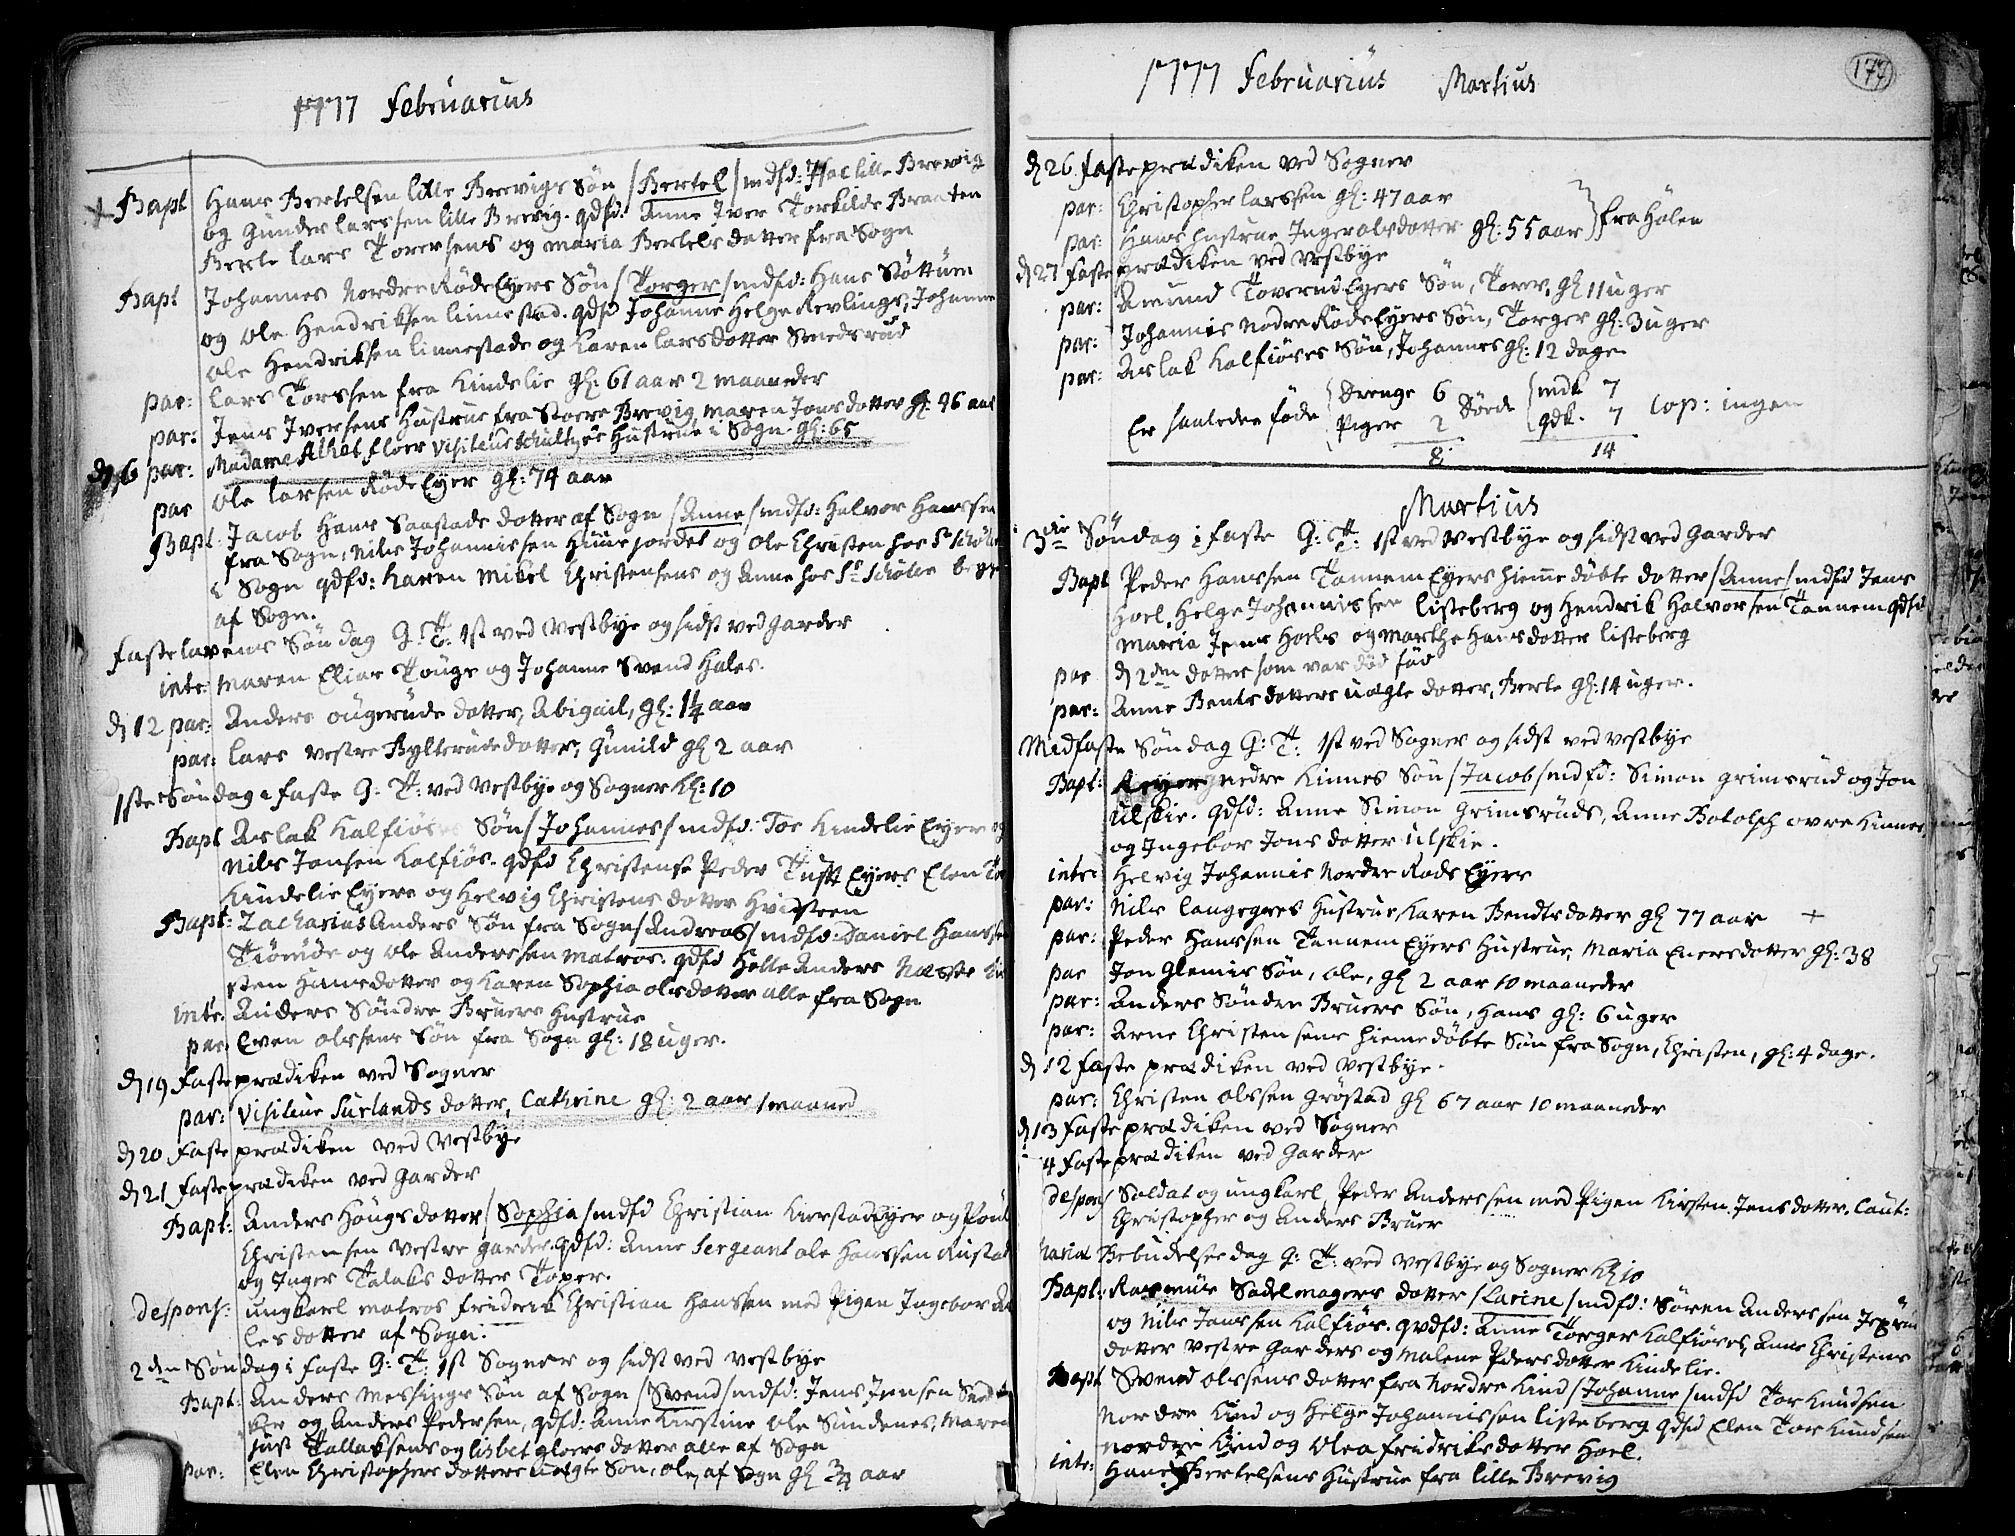 1777 Februarius
Bapt Hans Bertelsen lille Brevigs Søn /Bertel/ mdfd: Brevig
og Gunder larssen lille Brevig. qdfd: Anne Iver Torkilds Braaten
Berte lars Torersens og maria Bertels datter fra Sogn
Bapt Johannes Nordre Røds Eyers Søn /Torger/ mdfd: Hans Støttum
og Ole Hendriksen linnestad. qdfd Johanne Helge Revlings, Johanne
Ole Hendriksen linnestads og Karen larsdotter Smedsrud
par: lars Torssen fra Kindelie gl: 61 aar 2 maaneder
par: Jens Iversens Hustrue fra Store Brevig maren Jonsdotter gl: 46 aar
par: Madame Floer Visiteur Schultzes Hustrue i Sogn gl: 65
par Ole larsen Røds Eyer gl: 74 aar
Bapt: Jacob Hans Saastads dotter af Sogn /Anne/ mdfd: Halvor Hanssen
fra Sogn, Niels Johannissen Huuejordet og Ole Christen hos Sr
i Sogn qdfd: Karen Mikel Christensens og Anne hos Sr
af Sogn.
Fastelavens Søndag G: T: 1st ved Vestbye og sidst ved Garder
intr: Maren Elias Touge og Johanne Svend Hales.
d 12 par: Anders ougeruds dotter, Abigail, gl: 1 1/4 aar
par: lars Vestre Bylteruds dotter, Gunild gl 2 aar
1ste Søndag i faste G: T: ved Vestbye og Sogner kl: 10
Bapt Aslak Kalfiøses Søn /Johannes/ mdfd: Tor Kindelie Eyer og
Niels Jansen Kolfiøs. qdfd Christense Peder Tuft Eyers Elen Tor
Kindelie Eyers og Helvig Christens dotter Hvidsteen
Bapt: Zacharias Anders Søn fra Sogn /Andreas/ mdfd: Daniel Hanssen
og Ole Anderssen matros. qdfd Helle Anders
sten Hansdotter og Karen Sophia olsdotter alle fra Sogn
intr Anders Søndre Bruers Hustrue
par: Even olssens Søn fra Sogn gl: 18 uger.
d 19 Fasteprædiken ved Sogner
par: Visiteur Surlands dotter, Cathrine gl: 2 aar 1 maaned
d 20 Fasteprædiken ved Vestbye
d 21 Fasteprædiken ved Garder
Bapt: Anders Hougs dotter /Sophia/ mdfd Christian Kierstad Eyer og Poul
Christensen Vestre garder. qdfd: Anne Sergeant ole Hanssen Rustad
og Inger Talaks dotter Toper.
despons: ungkarl matros friderik Christian Hanssen med Pigen Ingebor
les dotter af Sogn.
2den Søndag i faste G: T: 1st Sogner og sidst ved Vestbye
Bapt: Anders Messings Søn af Sogn /Svend/ mdfd: Jens Jensen
og Anders Pedersen, qdfd: Anne Kirstine Ole Sundenes, Maren
just Tallaksens og lisbet gloers dotter alle af Sogn
par: Elen Christophers dotters uægte Søn, ole, af Sogn gl 3/4 aar
1777 Februarius Martius
177
d 26 Fasteprædiken ved Sogner
par: Christopher larssen gl: 47 aar
par: Hans Hustrue Inger olsdotter gl: 55 aar } fra Hølen
d 27 Fasteprædiken ved Vestbye
par: Amund Toverud Eyers Søn, Torer, gl 11 uger
par: Johannis Nodre Røds Eyers Søn, Torger gl: 3 uger
par: Aslak Kalfiøses Søn, Johannes gl: 12 dage
Er saaleden føde Drenge 6 Døde mdk 7 Cop: ingen
Piger 2 qdk. 7
8 14
Martius
3die Søndag i faste G: T: 1st ved Vestbye og sidst ved Garder
Bapt Peder Hanssen Tannem Eyers hiemedøbte dotter /Anne/ mdfd Jens
Hoel, Helge Johannissen listeberg og Hendrik Halvorsen Tannem qdfd
Maria Jens Hoels og Marthe Hansdotter listeberg
par d 2den dotter som var død fød
par: Anne Bentsdotters uægte dotter, Berte gl: 14 uger.
Midfaste Søndag G: T: 1st ved Sogner og sidst ved Vestbye
Bapt: Reyer nedre Kinnes Søn /Jacob/ mdfd: Simon Grimsrud og Jon
Ulskie. qdfd: Anne Simon Grimsruds, Anne Botolph ovre Kinnes,
og Ingebor Jons dotter Ulskie.
intr: Helvig Johannis Nordre Røds Eyers
par: Niels langegres Hustrue, Karen Bendts dotter gl 77 aar +
par: Peder Hanssen Tannem Eyers Hustrue, Maria Enersdotter gl: 38
par Jon Glemis Søn, ole, gl 2 aar 10 maaneder
par: Anders Søndre Bruers Søn, Hans gl: 6 uger
par: Arne Christensens hiemedøbte Søn fra Sogn, Christen, gl: 4 dage.
d 12 Fasteprædiken ved Vestbye.
par: Christen olssen grøstad gl 67 aar 10 maaneder
d 13 Fasteprædiken ved Sogner
14 Fasteprædiken ved Garder
despons Soldat og ungkarl Peder Anderssen med Pigen Kirsten Jens dotter. Caut:
Christopher og Anders Bruer
Mariæ Bebudelses dag G: T: ved Vestbye og Sogner kl 10
Bapt: Rasmus Sadelmagers dotter /Larine/ mdfd: Søren Anderssen
og Niels Janssen Kalfiøs. qvdfd: Anne Torger Kalfiøses, Anne Christens
dotter Vestre Garders og Malene Peders dotter Kindelie.
Bapt Svend olssens dotter fra Nordre Kind /Johanne/ mdfd Tor Knudsen
Nordre Kind og Helge Johannissen listeberg qdfd Elen Tor Knudsens
nordre Kind og Olea fridriks dotter Hoel.
intr: Hans Bertelsens Hustrue fra lille Brevig